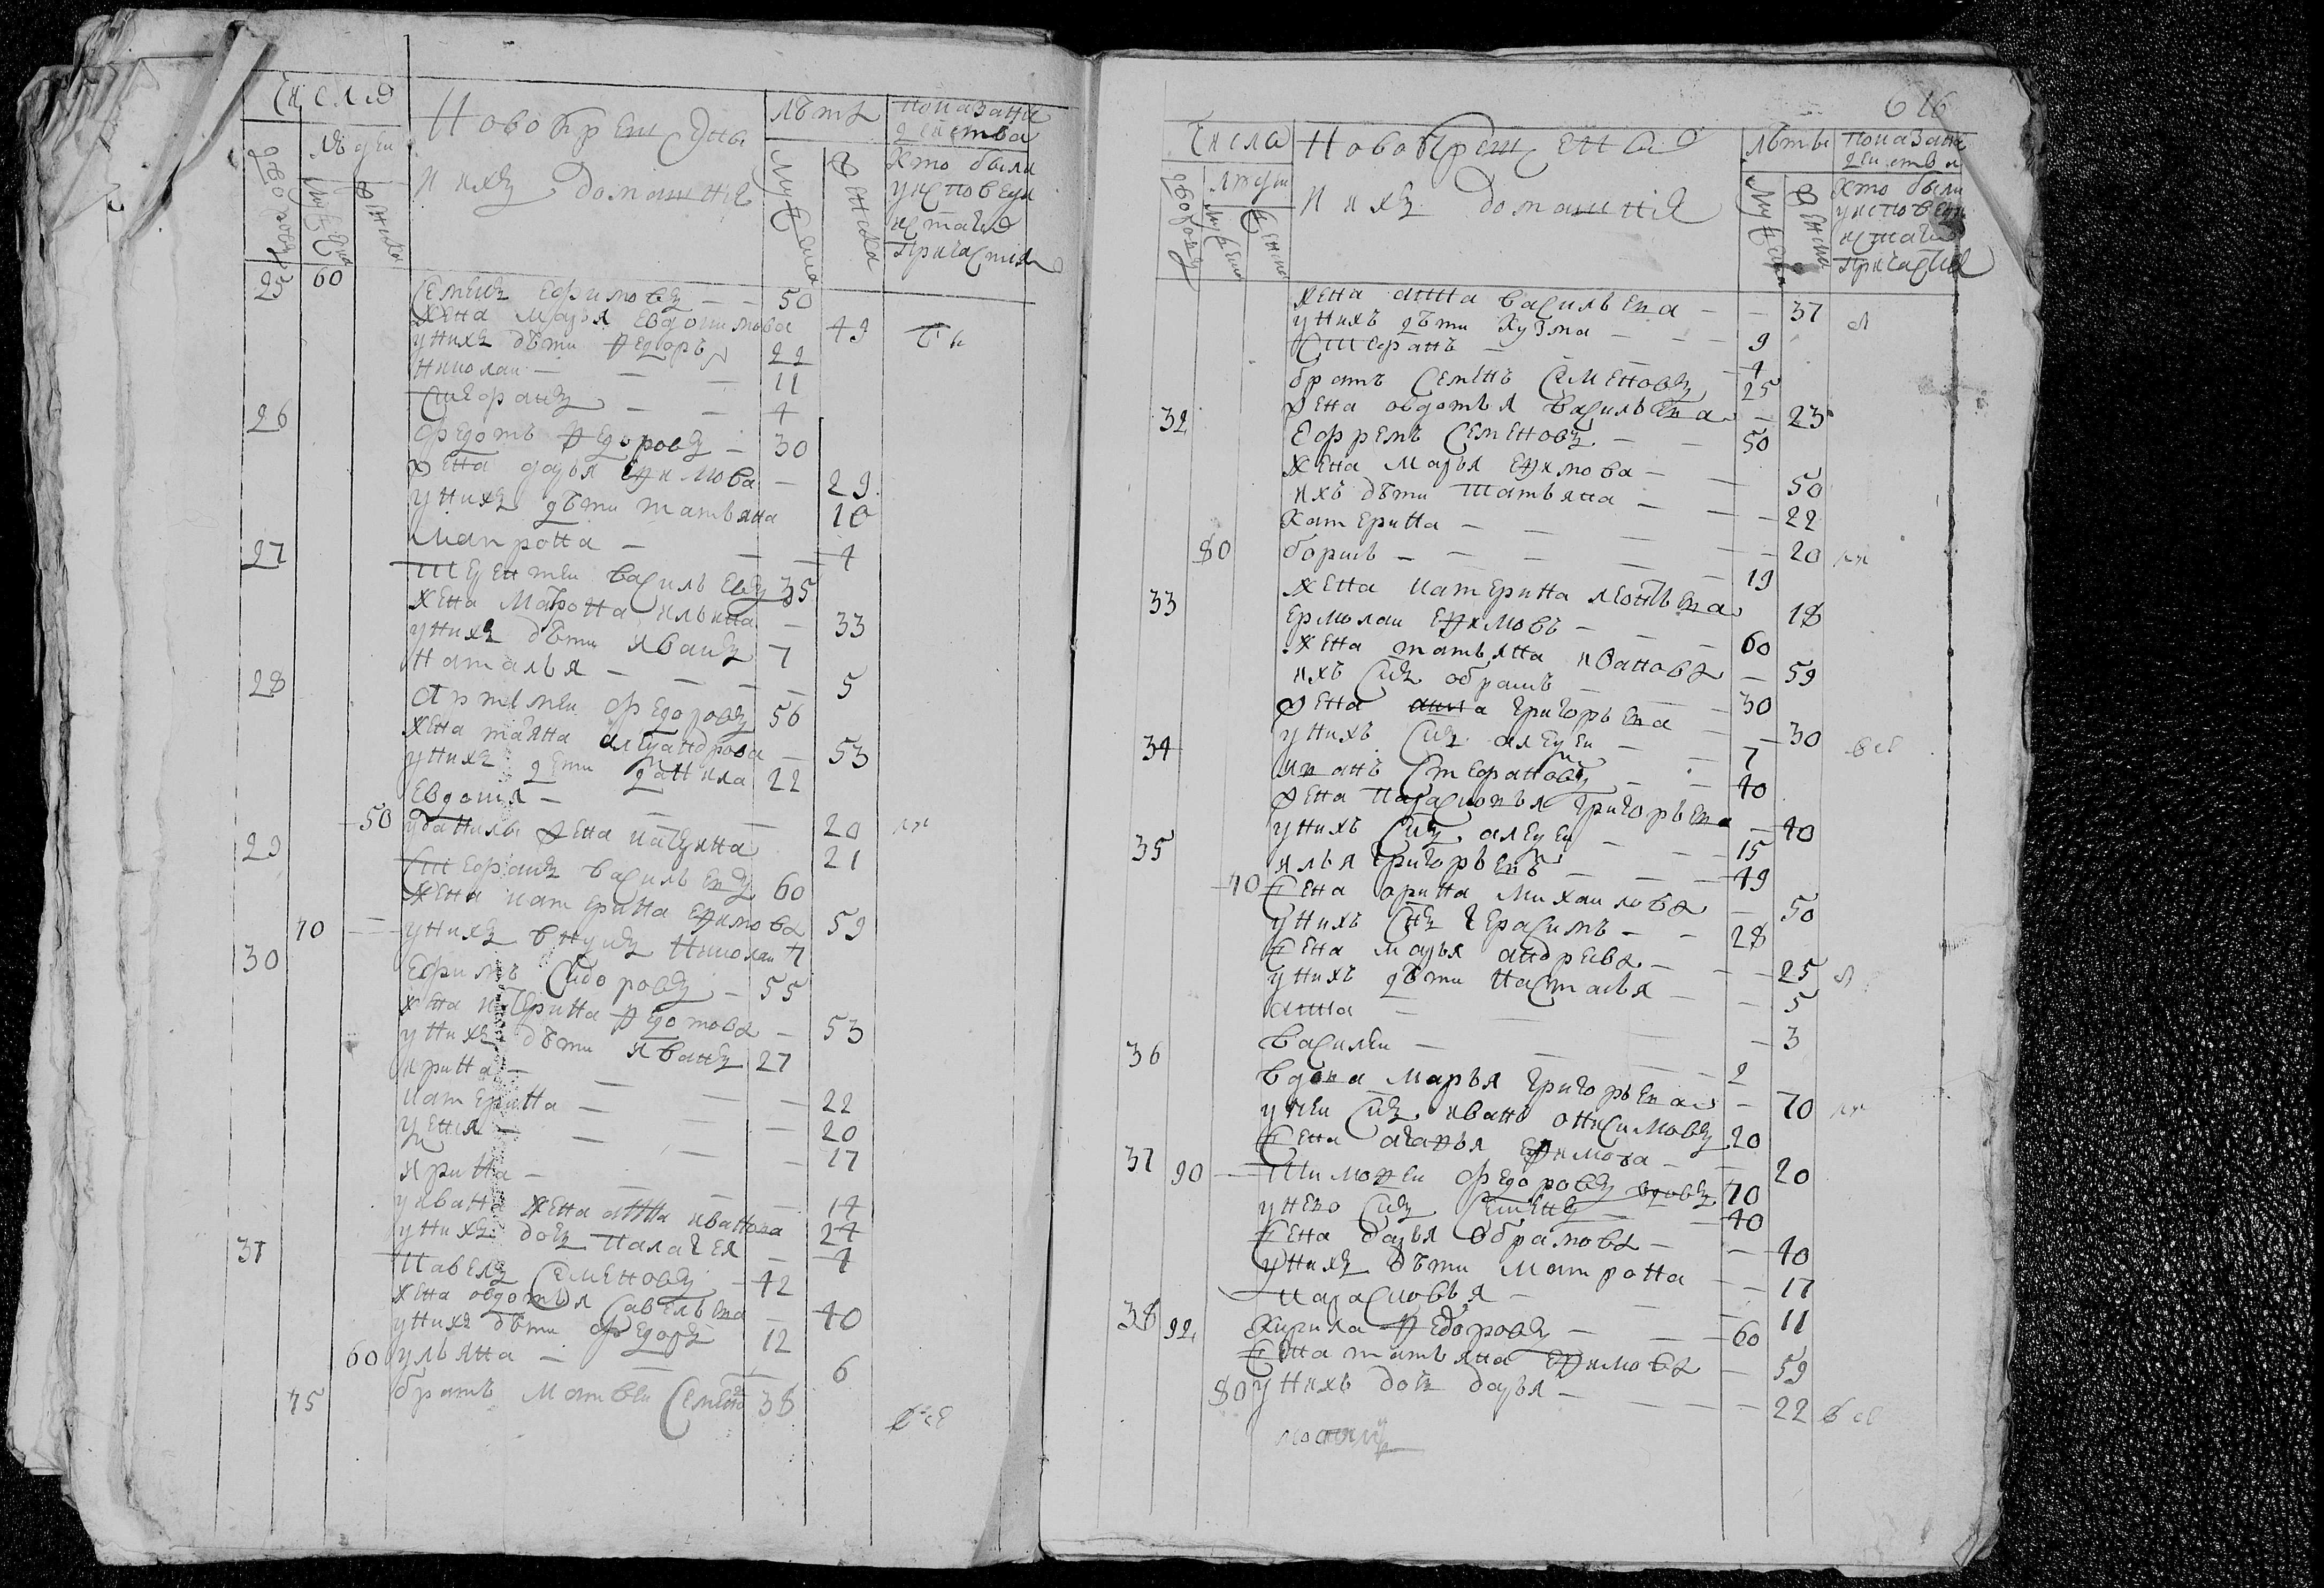 Числа
Новокрещены
лѣта
показание действа
людеи
и ихъ домашние
кто были у исповеди и святаго причастия
дворовъ
мужеска
женска
мужеска
женска
25 60 Семенъ Ефимовъ — — 50
жена Марья Евдокимова 49
у нихъ дѣти Федоръ 22
Николаи — — — 11
Стефанъ — — 4
26 Федотъ Федоровъ — 30
жена Дарья Ефимова — 29
у нихъ дѣти Татьяна 10
Матрона — — 4
27 Терентеи Васильевъ 35
жена Матрона Ильина — 33
у нихъ дѣти Иванъ 7
Наталья — — — 5
28 Артемеи Федоровъ 56
жена Татьяна Александрова — 53
у нихъ дети Данила 22
Евдокия — — — 20
50 у Данилы жена Катерина 21
29 Стефанъ Васильевъ 60
жена Катерина Ефимова 59
70 — у нихъ внукъ Николаи 4
30 Ефимъ Сидоровъ — 55
жена Катерина Федотова — 53
у нихъ дѣти Иванъ 27
Ирина — — — 22
Катерина — — — 20
Ксения — — — 17
Ирина — — — 14
у Ивана жена Анна Иванова 24
у нихъ дочь Палагея — 4
31 Павелъ Семеновъ — 42
жена Овдотья Савельева — 40
у нихъ дѣти Федоръ 12
60 Ульяна — — — 6
75 братъ Матвеи Семеновъ 38
все
616
Числа
Новокрещеная
лѣты
показание действа
людеи
и ихъ домашния
кто были у исповеди и святаго причастия
дворовъ
мужеска
женска
мужеска
женска
жена Анна Васильева — — 37
у нихъ дѣти Кузма — — — 9
Стефанъ — — — 4
братъ Семенъ Семеновъ 25
жена Овдотья Васильева — 23
32 Ефремъ Семеновъ — — 50
жена Марья Ефимова — — 50
ихъ дѣти Татьяна — — — 22
Катерина — — — — 20
80 Борисъ — — — — 19
жена Катерина Леонтьева 18
33 Ермолаи Ефимовъ — — — 60
жена Татьяна Иванова — 59
ихъ сынъ Обрамъ — — 30
жена Анна Григорьева — — 30
у нихъ сынъ Алексеи — — 7
все
34 Иванъ Стефановъ — — 40
жена Парасковья Григорьева — 40
у нихъ сынъ Алексеи — — 15
35 Илья Григорьевъ — — — 49
70 жена Орина Михаилова — 50
у нихъ сынъ Герасимъ — — 28
жена Марья Андреева — — 25
у нихъ дѣти Насталья — — 5
Анна — — — 3
Василеи — — — 2
36 вдова Марья Григорьева — 70
у неи сынъ Иванъ Онисимовъ 20
жена Агафья Ефимова — — 20
37 90 — Тимофеи Федоровъ вдовъ 70
у него сынъ Семенъ — — 40
жена Дарья Обрамова — — 40
у нихъ дѣти Матрона — — 17
Парасковья — — — 11
38 92 Кирила Федоровъ — — — 60
жена Татьяна Ефимова — 59
80 у нихъ дочь Дарья — — — — 22 все